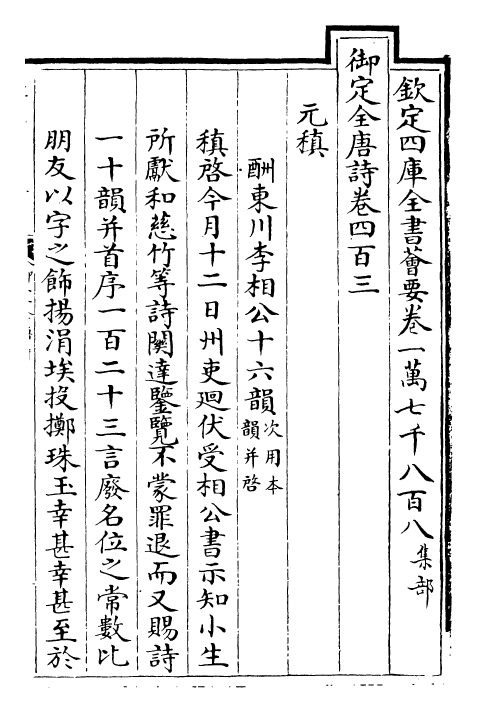 欽定四庫全書薈要卷一萬七千八百八 集部
御定全唐詩卷四百三
元稹
酬東川李相公十六韻 次用本韻并啓
稹啓今月十二日州吏廻伏受相公書示知小生
所獻和慈竹等詩闕達鑒覽不蒙罪退而又賜詩
一十韻并首序一百二十三言廢名位之常數比
朋友以字之飾揚涓埃投擲珠玉幸甚幸甚至於